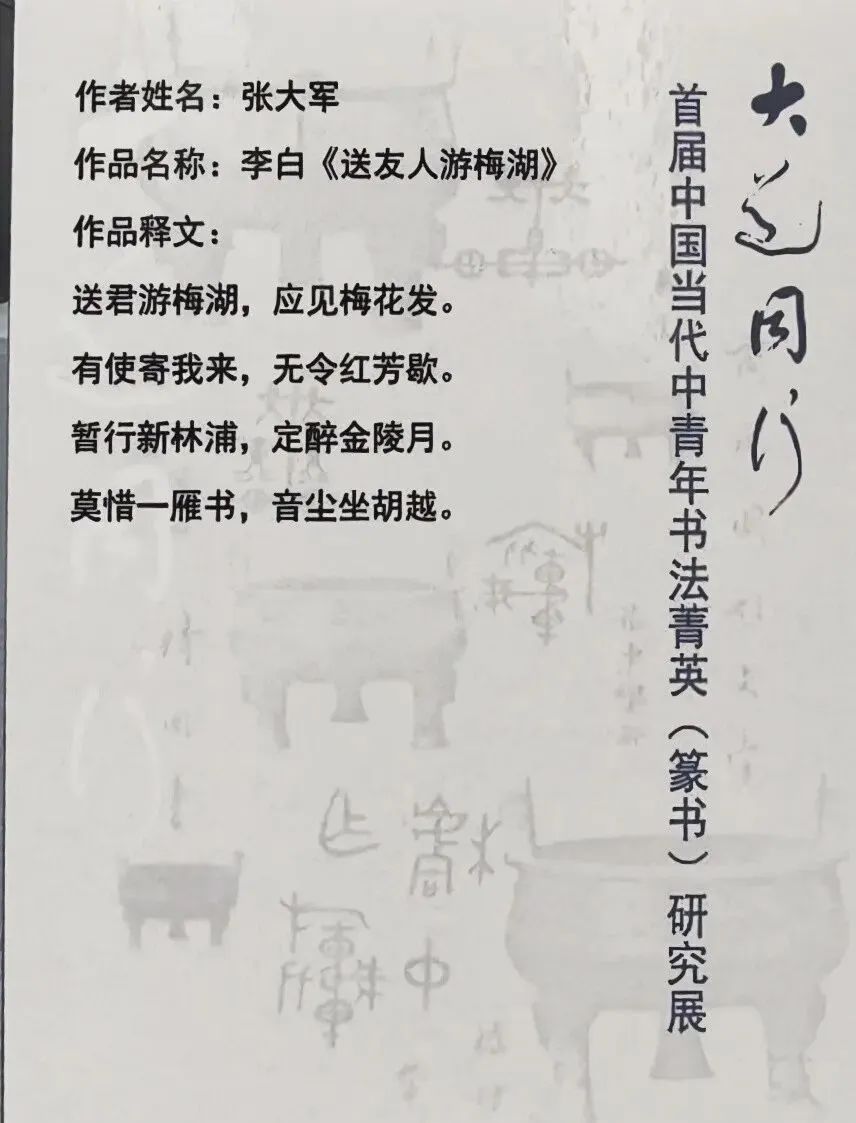 作者姓名：张大军
作品名称：李白《送友人游梅湖》
作品释文：
送君游梅湖，应见梅花发。
有使寄我来，无令红芳歇。
暂行新林浦，定醉金陵月。
莫惜一雁书，音尘坐胡越。
大道同行
首届中国当代中青年书法菁英（篆书）研究展